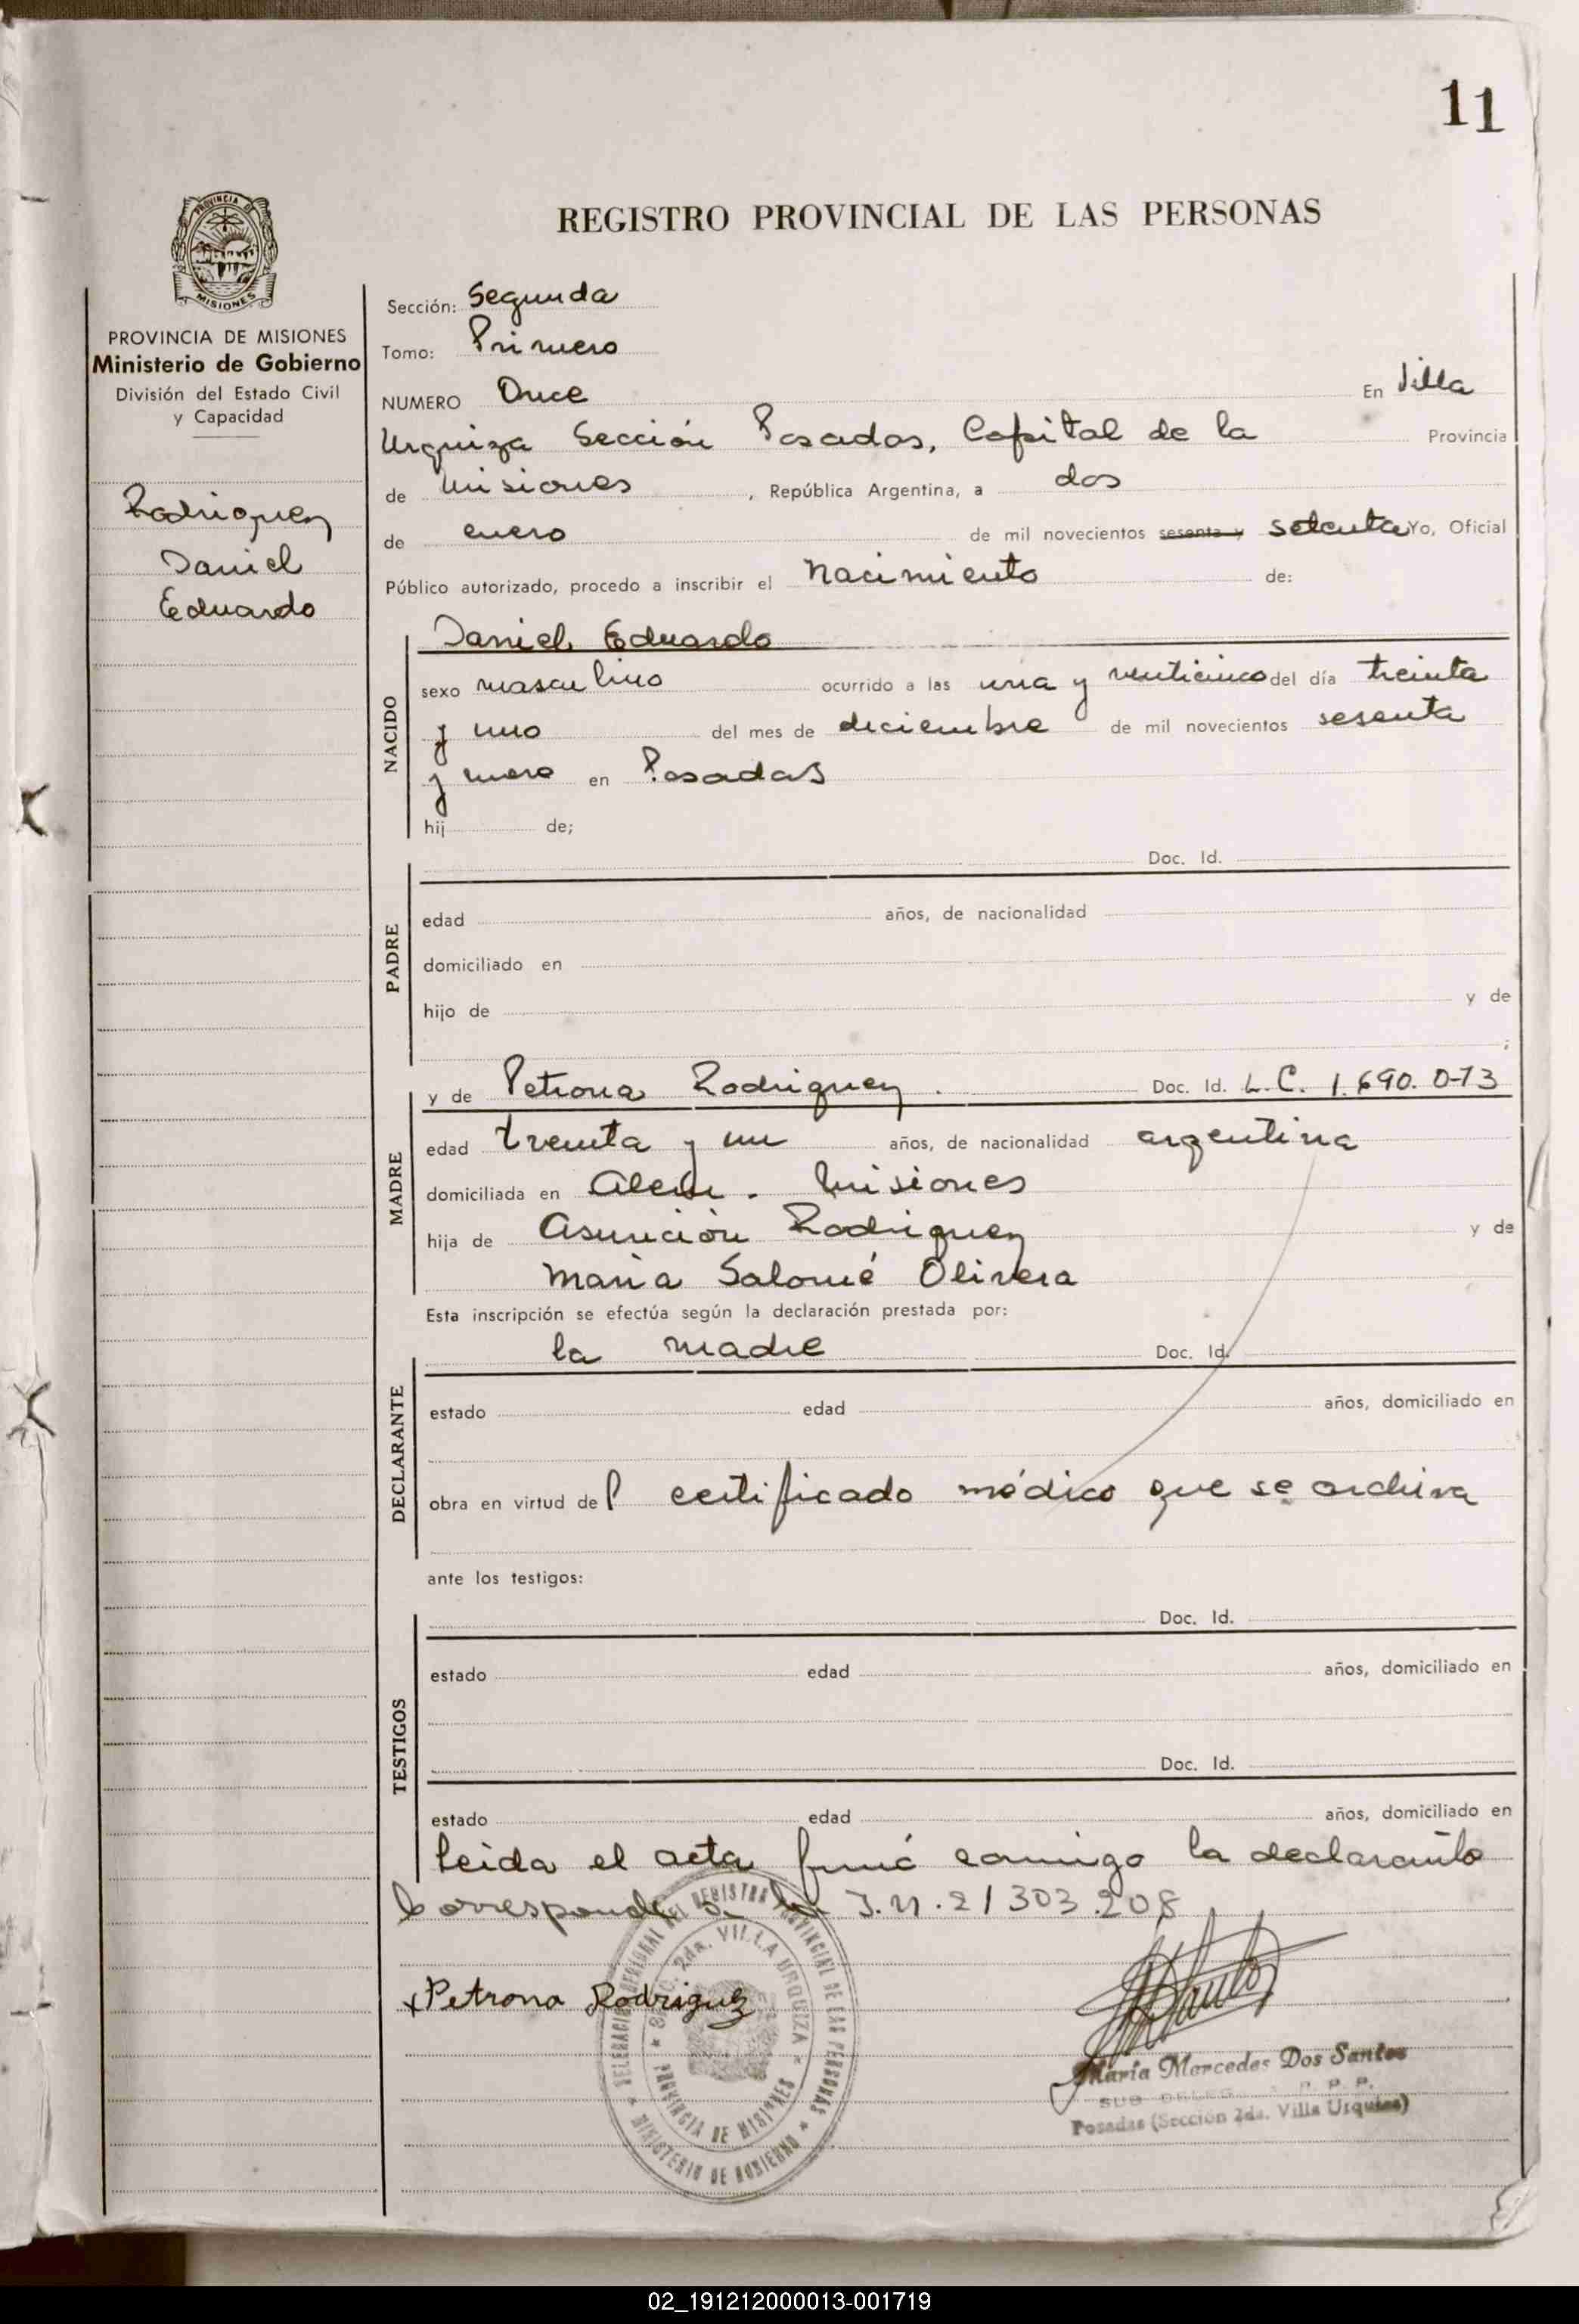 11
PROVINCIA DE
MISIONES
REGISTRO PROVINCIAL DE LAS PERSONAS
PROVINCIA DE MISIONES
Ministerio de Gobierno
División del Estado Civil
y Capacidad
Rodriguez
Daniel
Eduardo
Sección: Segunda
Tomo: Primero
NUMERO Once En Villa
Urquiza Sección Posadas, Capital de la Provincia
de Misiones, República Argentina, a dos
de enero de mil novecientos sesenta y setenta Yo, Oficial
Público autorizado, procedo a inscribir el Nacimiento de:
NACIDO
Daniel Eduardo
sexo masculino ocurrido a las una y venticinco del día treinta
y uno del mes de diciembre de mil novecientos sesenta
y nueve en Posadas
hij de;
PADRE
Doc. Id.
edad años, de nacionalidad
domiciliado en
hijo de y de
;
MADRE
y de Petrona Rodriguez. Doc. Id. L.C. 1.690.073
edad treinta y un años, de nacionalidad argentina
domiciliada en Alem. Misiones
hija de Asunción Rodriguez y de
Maria Salomé Olivera
Esta inscripción se efectúa según la declaración prestada por:
DECLARANTE
la madre Doc. Id.
estado edad años, domiciliado en
obra en virtud del certificado médico que se archiva
ante los testigos:
TESTIGOS
Doc. Id.
estado edad años, domiciliado en
Doc. Id.
estado edad años, domiciliado en
Leida el acta firmó conmigo la declarante
Corresponde a la J.N. 21303.208
x Petrona Rodriguez
DELEGACION REGIONAL DEL REGISTRO PROVINCIAL DE LAS PERSONAS
SECC. 2da. VILLA URQUIZA
PROVINCIA DE MISIONES
MINISTERIO DE GOBIERNO
María Mercedes Dos Santos
SUB R. P. P.
Posadas (Sección 2da. Villa Urquiza)
02_191212000013-001719